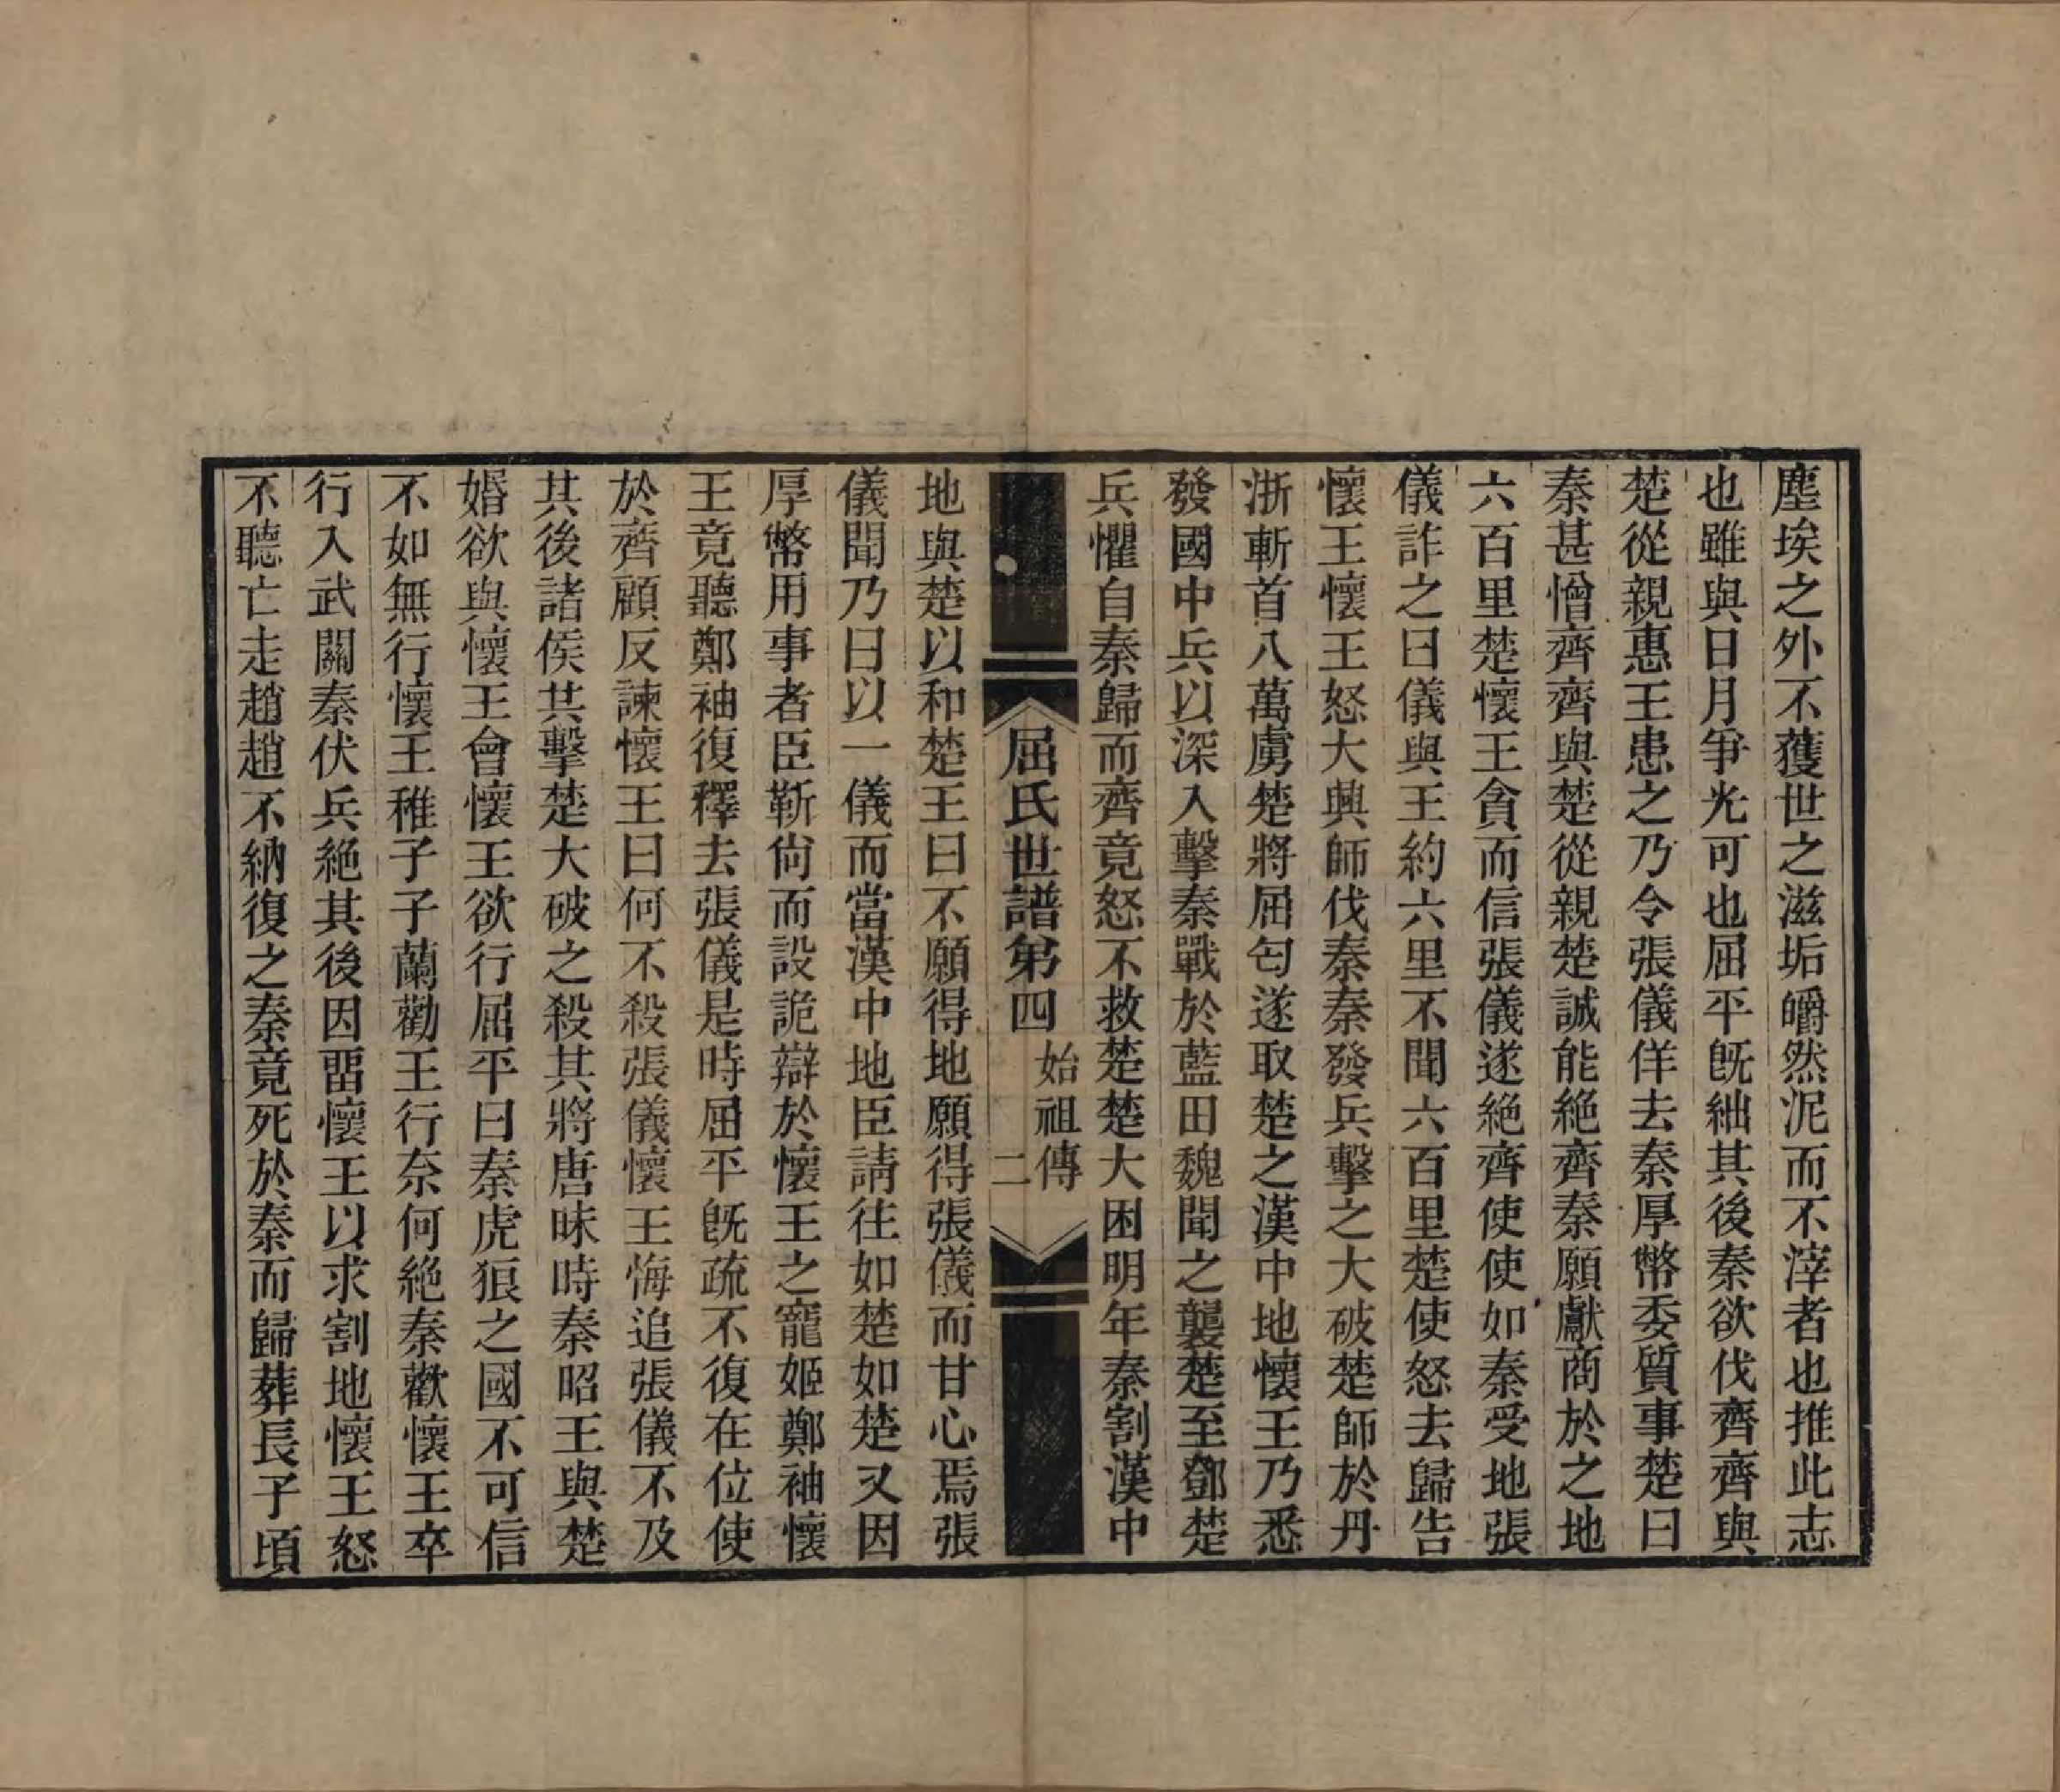 塵埃之外不獲世之滋垢皭然泥而不滓者也推此志
也雖與日月爭光可也屈平旣絀其後秦欲伐齊齊與
楚從親惠王患之乃令張儀佯去秦厚幣委質事楚曰
秦甚憎齊齊與楚從親楚誠能絶齊秦願獻商於之地
六百里楚懷王貪而信張儀遂絶齊使使如秦受地張
儀詐之曰儀與王約六里不聞六百里楚使怒去歸告
懷王懷王怒大興師伐秦秦發兵擊之大破楚師於丹
浙斬首八萬虜楚將屈匄遂取楚之漢中地懷王乃悉
發國中兵以深入擊秦戰於藍田魏聞之襲楚至鄧楚
兵懼自秦歸而齊竟怒不救楚楚大困明年秦割漢中
屈氏世譜第四 始祖傳 二
地與楚以和楚王曰不願得地願得張儀而甘心焉張
儀聞乃曰以一儀而當漢中地臣請往如楚如楚又因
厚幣用事者臣靳尙而設詭辯於懷王之寵姬鄭袖懷
王竟聽鄭袖復釋去張儀是時屈平旣疏不復在位使
於齊顧反諫懷王曰何不殺張儀懷王悔追張儀不及
其後諸侯共擊楚大破之殺其將唐昧時秦昭王與楚
婚欲與懷王會懷王欲行屈平曰秦虎狼之國不可信
不如無行懷王稚子子蘭勸王行奈何絶秦歡懷王卒
行入武關秦伏兵絶其後因畱懷王以求割地懷王怒
不聽亡走趙趙不納復之秦竟死於秦而歸葬長子頃